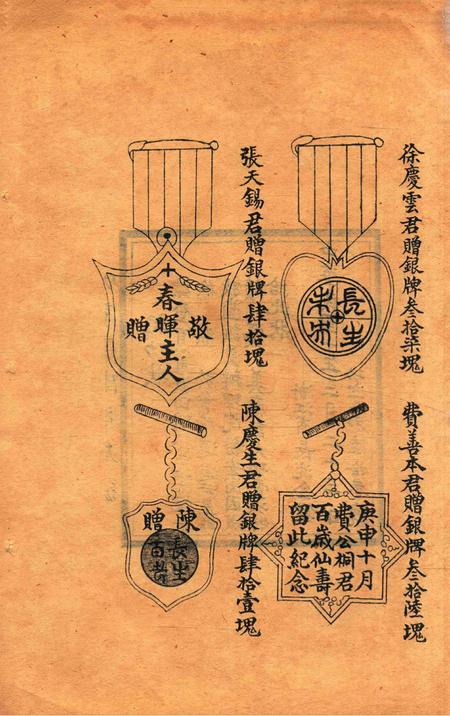 徐慶雲君贈銀牌叁拾柒塊
長生
未央
費善本君贈銀牌叁拾陸塊
庚申十月
費公桐君
百歲仙壽
留此紀念
張天錫君贈銀牌肆拾塊
敬
春暉主人
贈
陳慶生君贈銀牌肆拾壹塊
陳
贈
長生